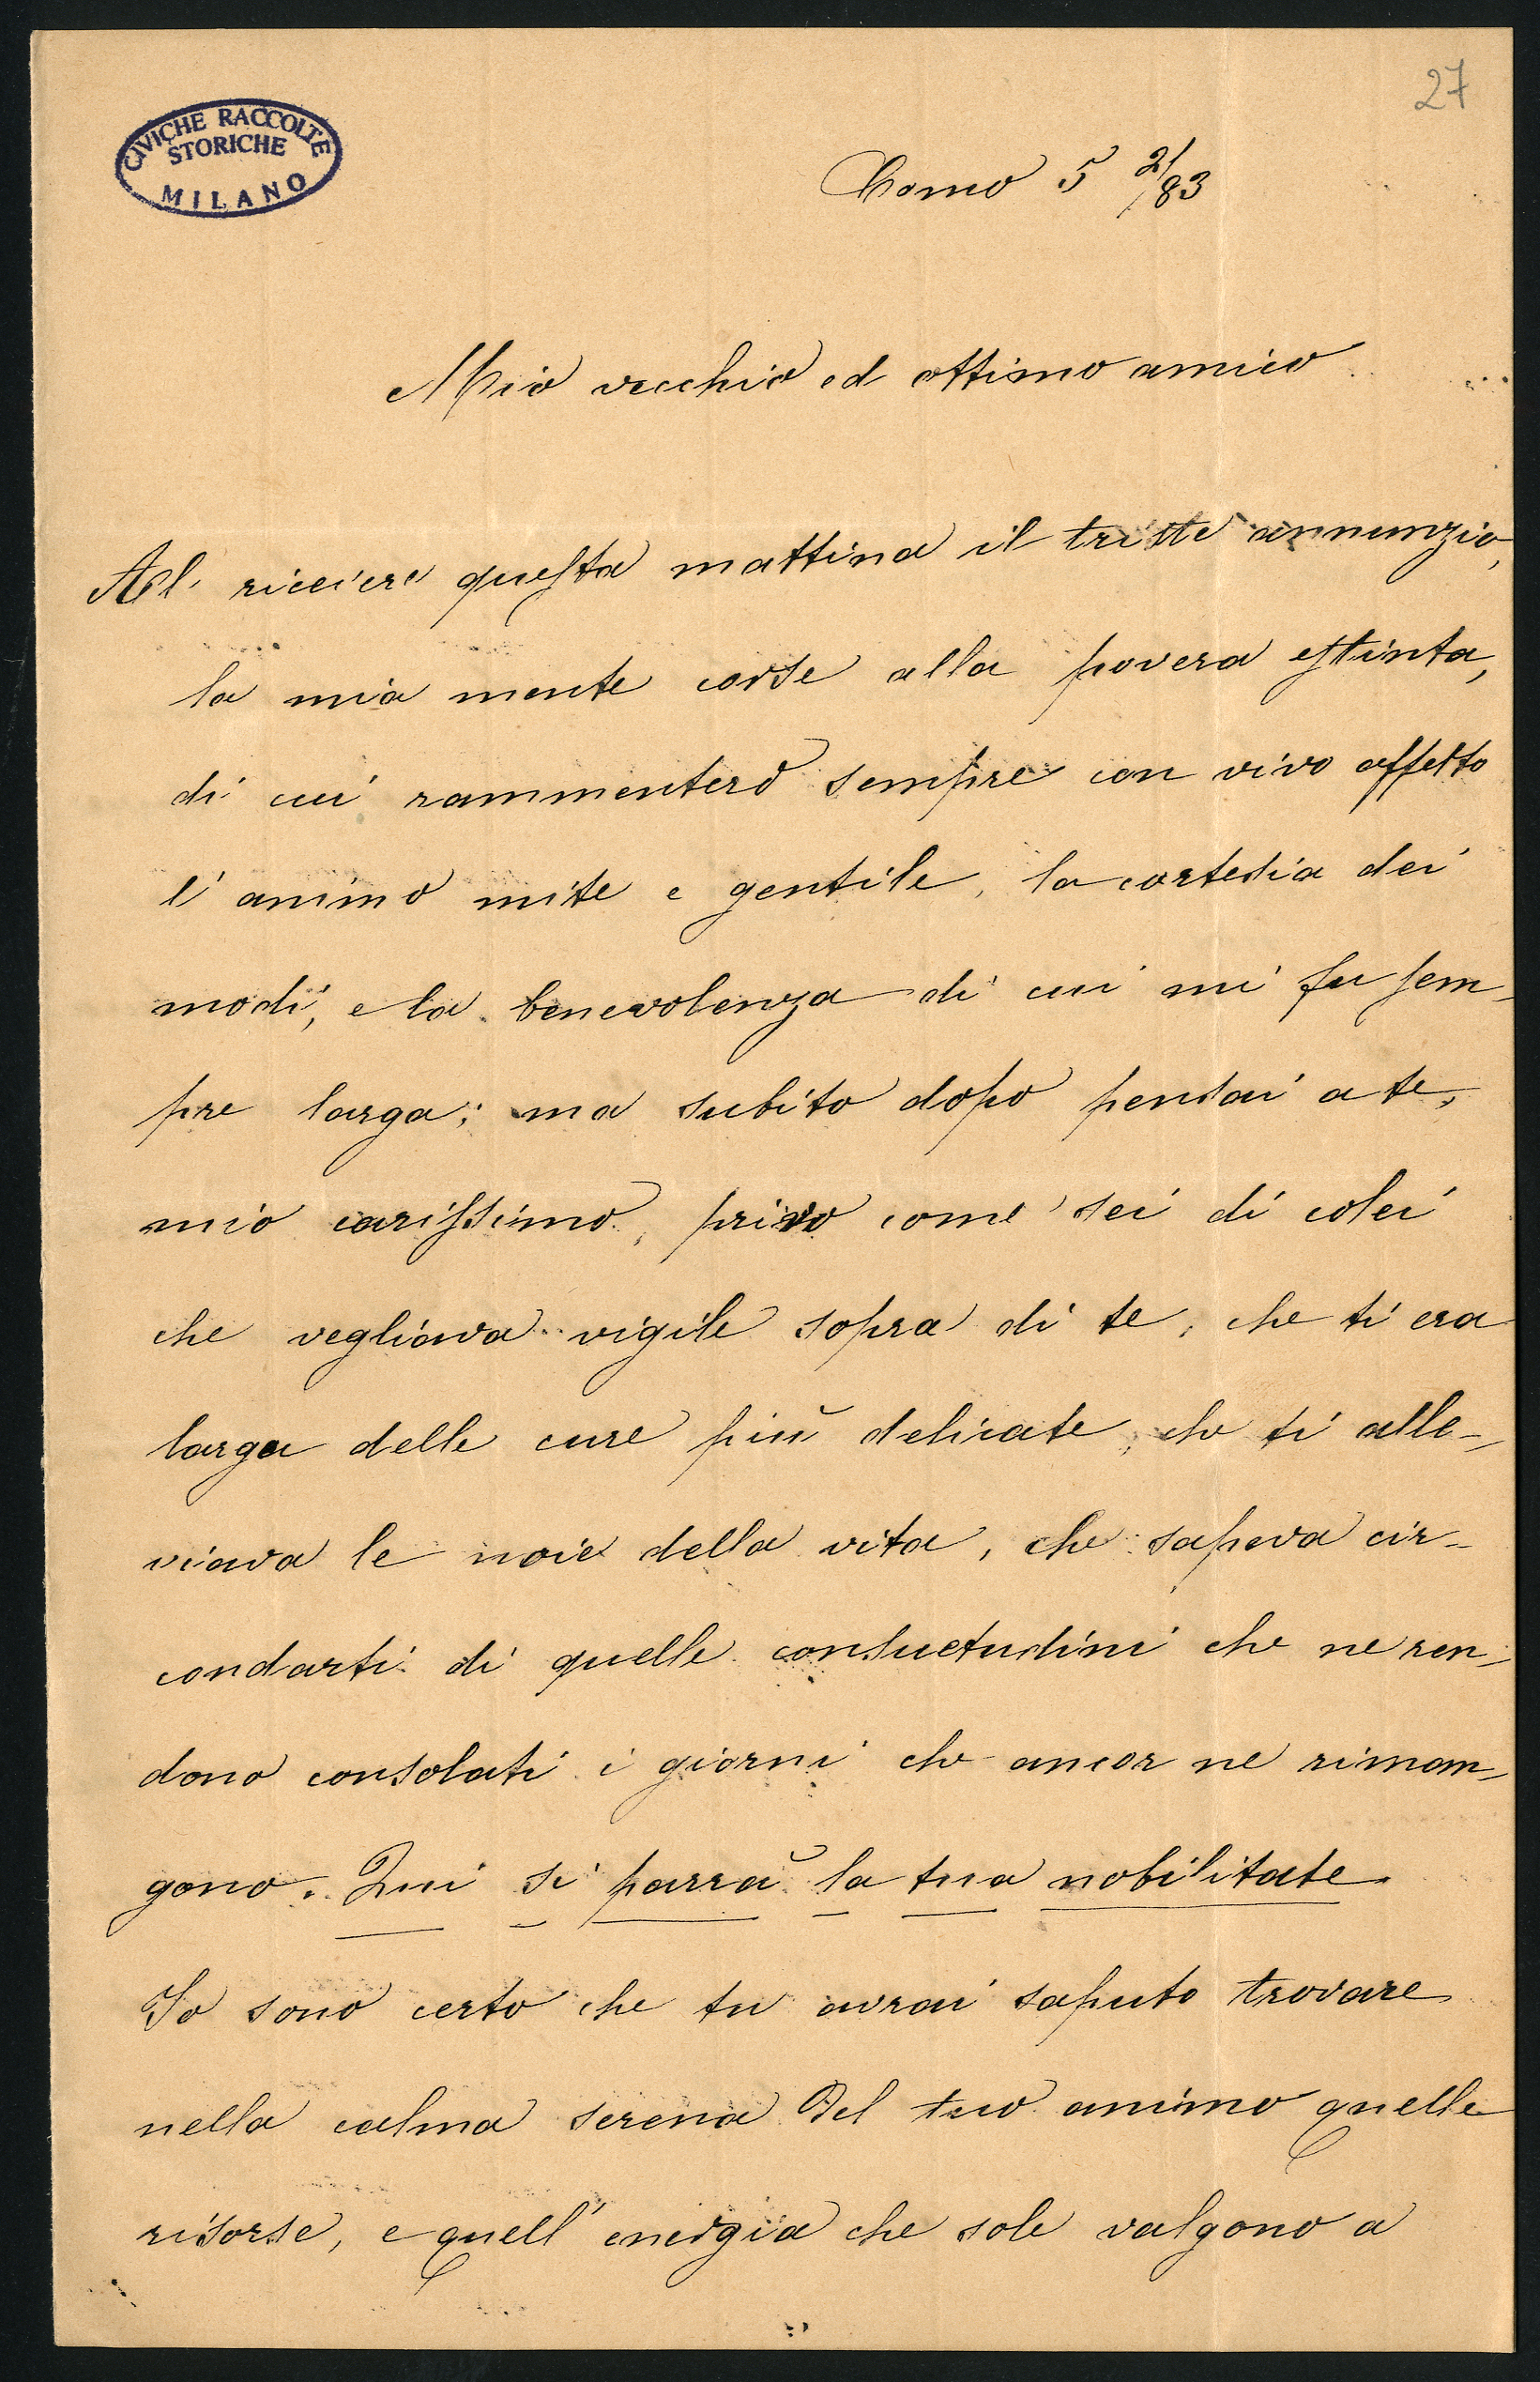 27
CIVICHE RACCOLTE
STORICHE
MILANO
Como 5 2/83
Mio vecchio ed ottimo amico
Al ricevere questa mattina il triste annunzio,
la mia mente corse alla povera estinta,
di cui rammenterò sempre con vivo affetto
l'animo mite e gentile, la cortesia dei
modi, e la benevolenza di cui mi fu sem-
pre larga; ma subito dopo pensai a te,
mio carissimo, privo come sei di colei
che vegliava vigile sopra di te, che ti era
larga delle cure più delicate, che ti alle-
viava le noie della vita, che sapeva cir-
condarti di quelle consuetudini che ne ren-
dono consolati i giorni che ancor ne riman-
gono. Qui si parrà la tua nobilitate.
Io sono certo che tu avrai saputo trovare
nella calma serena del tuo animo quelle
risorse, e quell'energia che sole valgono a